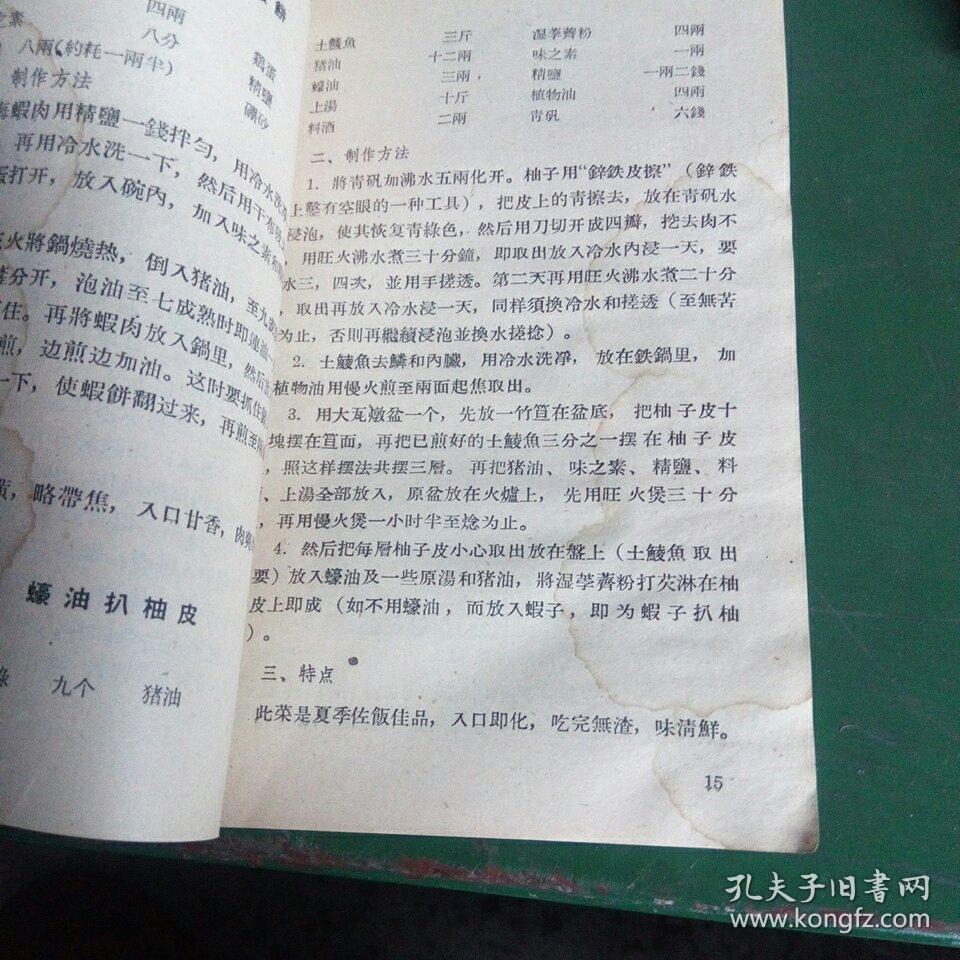 餅
四兩
之素
八分
八兩(約耗一兩半)
鷄蛋
精鹽
硼砂
制作方法
海蝦肉用精鹽一錢拌勻，用冷水洗
再用冷水洗一下，然后用干布吸
蛋打开，放入碗內，加入味之素
火將鍋燒热，倒入猪油，至九
分开，泡油至七成熟时即連油
住。再將蝦肉放入鍋里，然后
煎，边煎边加油。这时要抓住
一下，使蝦餅翻过来，再煎至
，略帶焦，入口甘香，肉爽
蠔油扒柚皮
九个 猪油
土鯪魚 三斤 湿荸薺粉 四兩
猪油 十二兩 味之素 一兩
蠔油 三兩 精鹽 一兩二錢
上湯 十斤 植物油 四兩
料酒 二兩 青矾 六錢
二、制作方法
1. 將青矾加沸水五兩化开。柚子用“鋅鉄皮擦”（鋅鉄
上鑿有空眼的一种工具），把皮上的青擦去，放在青矾水
浸泡，使其恢复青綠色，然后用刀切开成四瓣，挖去肉不
，用旺火沸水煮三十分鐘，即取出放入冷水內浸一天，要
水三，四次，並用手搓透。第二天再用旺火沸水煮二十分
，取出再放入冷水浸一天，同样須換冷水和搓透（至無苦
为止，否則再繼續浸泡並換水搓捻）。
2. 土鯪魚去鱗和內臟，用冷水洗淨，放在鉄鍋里，加
植物油用慢火煎至兩面起焦取出。
3. 用大瓦燉盆一个，先放一竹笪在盆底，把柚子皮十
塊摆在笪面，再把已煎好的土鯪魚三分之一摆在柚子皮
，照这样摆法共摆三層。再把猪油、味之素、精鹽、料
、上湯全部放入，原盆放在火爐上，先用旺火煲三十分
，再用慢火煲一小时半至焾为止。
4. 然后把每層柚子皮小心取出放在盤上（土鯪魚取出
要）放入蠔油及一些原湯和猪油，將湿荸薺粉打芡淋在柚
皮上即成（如不用蠔油，而放入蝦子，即为蝦子扒柚
）。
三、特点
此菜是夏季佐飯佳品，入口即化，吃完無渣，味清鮮。
15
孔夫子旧书网
www.kongfz.com